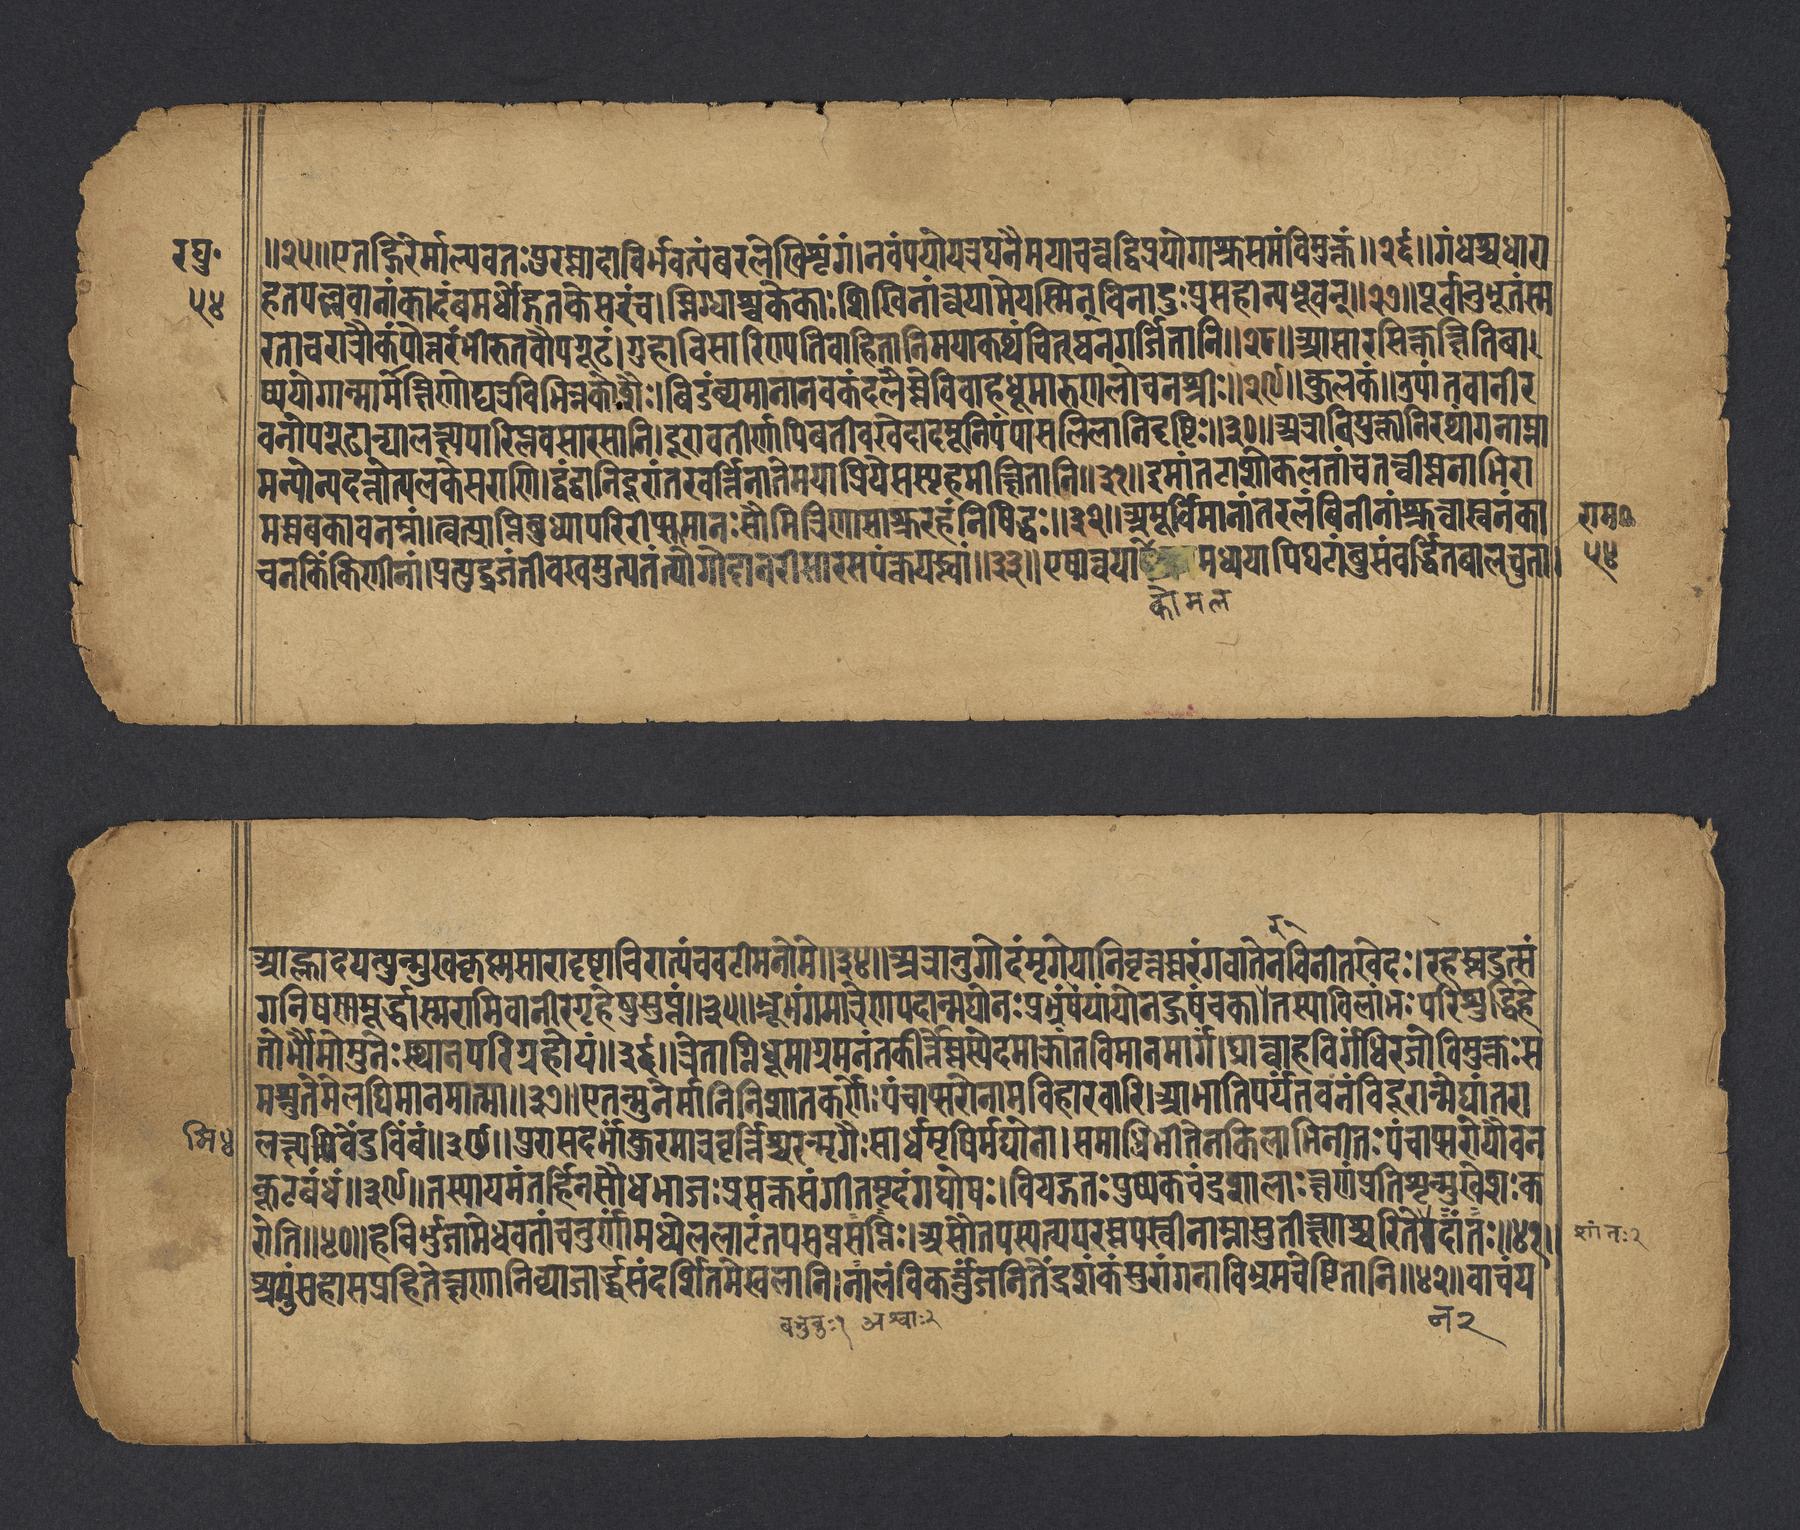 रघुः
५४
॥२५॥एतद्गिरेर्माल्यवतःपुरस्तादाविर्भवत्यंबरलेखिशृंगं।नवंपयोयत्रघनैमयाचत्वद्विप्रयोगाश्रुसमंविमुक्तं॥२६॥गंधश्चधारा
हतपल्वलानांकादंबमर्धोद्गतकेसरंच।स्निग्धाश्चकेकाःशिखिनांत्वयामेयस्मिन्विनादुःप्रसहान्यभूवन्॥२७॥पूर्वानुभूतंस्म
रताचरात्रौकंपोत्तरंभीरुतवोपगूढं।गुहाविसारिण्यतिवाहितानिमयाकथंचित्घनगर्जितानि॥२८॥आसारसिक्तक्षितिबा
ष्पयोगान्मामक्षिणोद्यत्रविभिन्नकोशैः।विडंव्यमानानवकंदलैस्तेविवाहधूमारुणलोचनश्रीः॥२९॥कुलकं॥उपांतवानीर
वनोपगूढान्यालक्ष्यपारिप्लवसारसानि।दूरावतीर्णापिबतीवखेदादमूनिपंपासलिलानिदृष्टिः॥३०॥अत्रावियुक्तानिरथांगनाम्ना
मन्योन्यदत्तोत्पलकेसराणि।द्वंद्वानिदूरांतरवर्त्तिनातेमयाप्रियेसस्पृहमीक्षितानि॥३१॥इमांतटाशोकलतांचतन्वींस्तनाभिरा
मस्तबकावनम्रां।त्वत्प्राप्तिबुध्यापरिरीप्समानःसौमित्रिणासाश्रुरहंनिषिद्धः॥३२॥अमूर्विमानांतरलंबिनीनांश्रुत्वास्वनंकां
चनकिंकिणीनां।प्रत्युद्व्रजंतीवखमुत्पतंत्योगोदावरीसारसपंक्तयस्त्वां॥३३॥एषात्वयामध्ययापिघटांबुसंवर्द्धितबालचूता।
कोमल
राम
५४
आह्लादयत्युन्मुखकृष्णसारादृष्टाचिरात्पंचवटीमनोमे॥३४॥अत्रानुगोदंमृगयानिवृत्तस्तरंगवातेनविनीतखेदः।रहस्त्वदुत्सं
गनिषण्णमूर्द्धास्मरामिवानीरगृहेषुसुप्तं॥३५॥भ्रूभंगमात्रेणपदान्मघोनःप्रभ्रंषयांयोनहुषंचकार।तस्याविलांभःपरिशुद्धिहे
तोर्भौमोमुनेःस्थानपरिग्रहोयं॥३६॥त्रेताग्निधूमाग्रमनंतकीर्त्तेस्तस्येदमाक्रांतविमानमार्गं।घ्रात्वाहविर्गंधिरजोविमुक्तःस
मश्नुतेमेलघिमानमात्मा॥३७॥एतन्मुनेर्मानिनिशातकर्णेःपंचाप्सरोनामविहारवारि।आभातिपर्यंतवनंविदूरान्मेघांतरा
लक्ष्यमिवेंदुबिंबं॥३८॥पुरासदर्भांकुरमात्रवृत्तिश्चरन्मृगैःसार्धमृषिर्मघोना।समाधिभीतेनकिलाभिनीतःपंचाप्सरोयौवन
कूटबंधं॥३९॥तस्यायमंतर्हितसौधभाजःप्रसक्तसंगीतमृदंगघोषः।वियद्गतःपुष्पकचंद्रशालाःक्षणंप्रतिश्रुन्मुखराःक
रोति॥४०॥हविर्भुजामेधवतांचतुर्णांमध्येललाटंतपसप्तसप्तिः।असौतपस्यत्यपरस्तपस्वीनाम्नासुतीक्ष्णश्चरितेनदांतः॥४१॥
अमुंसहासप्रहितेक्षणानिव्याजार्द्धसंदर्शितमेखलानि।नालंविकर्त्तुंजनितेंद्रशंकंसुरांगनाविभ्रमचेष्टितानि॥४२॥वाचंय
मि४
शांतः२
अश्वाः२
न२